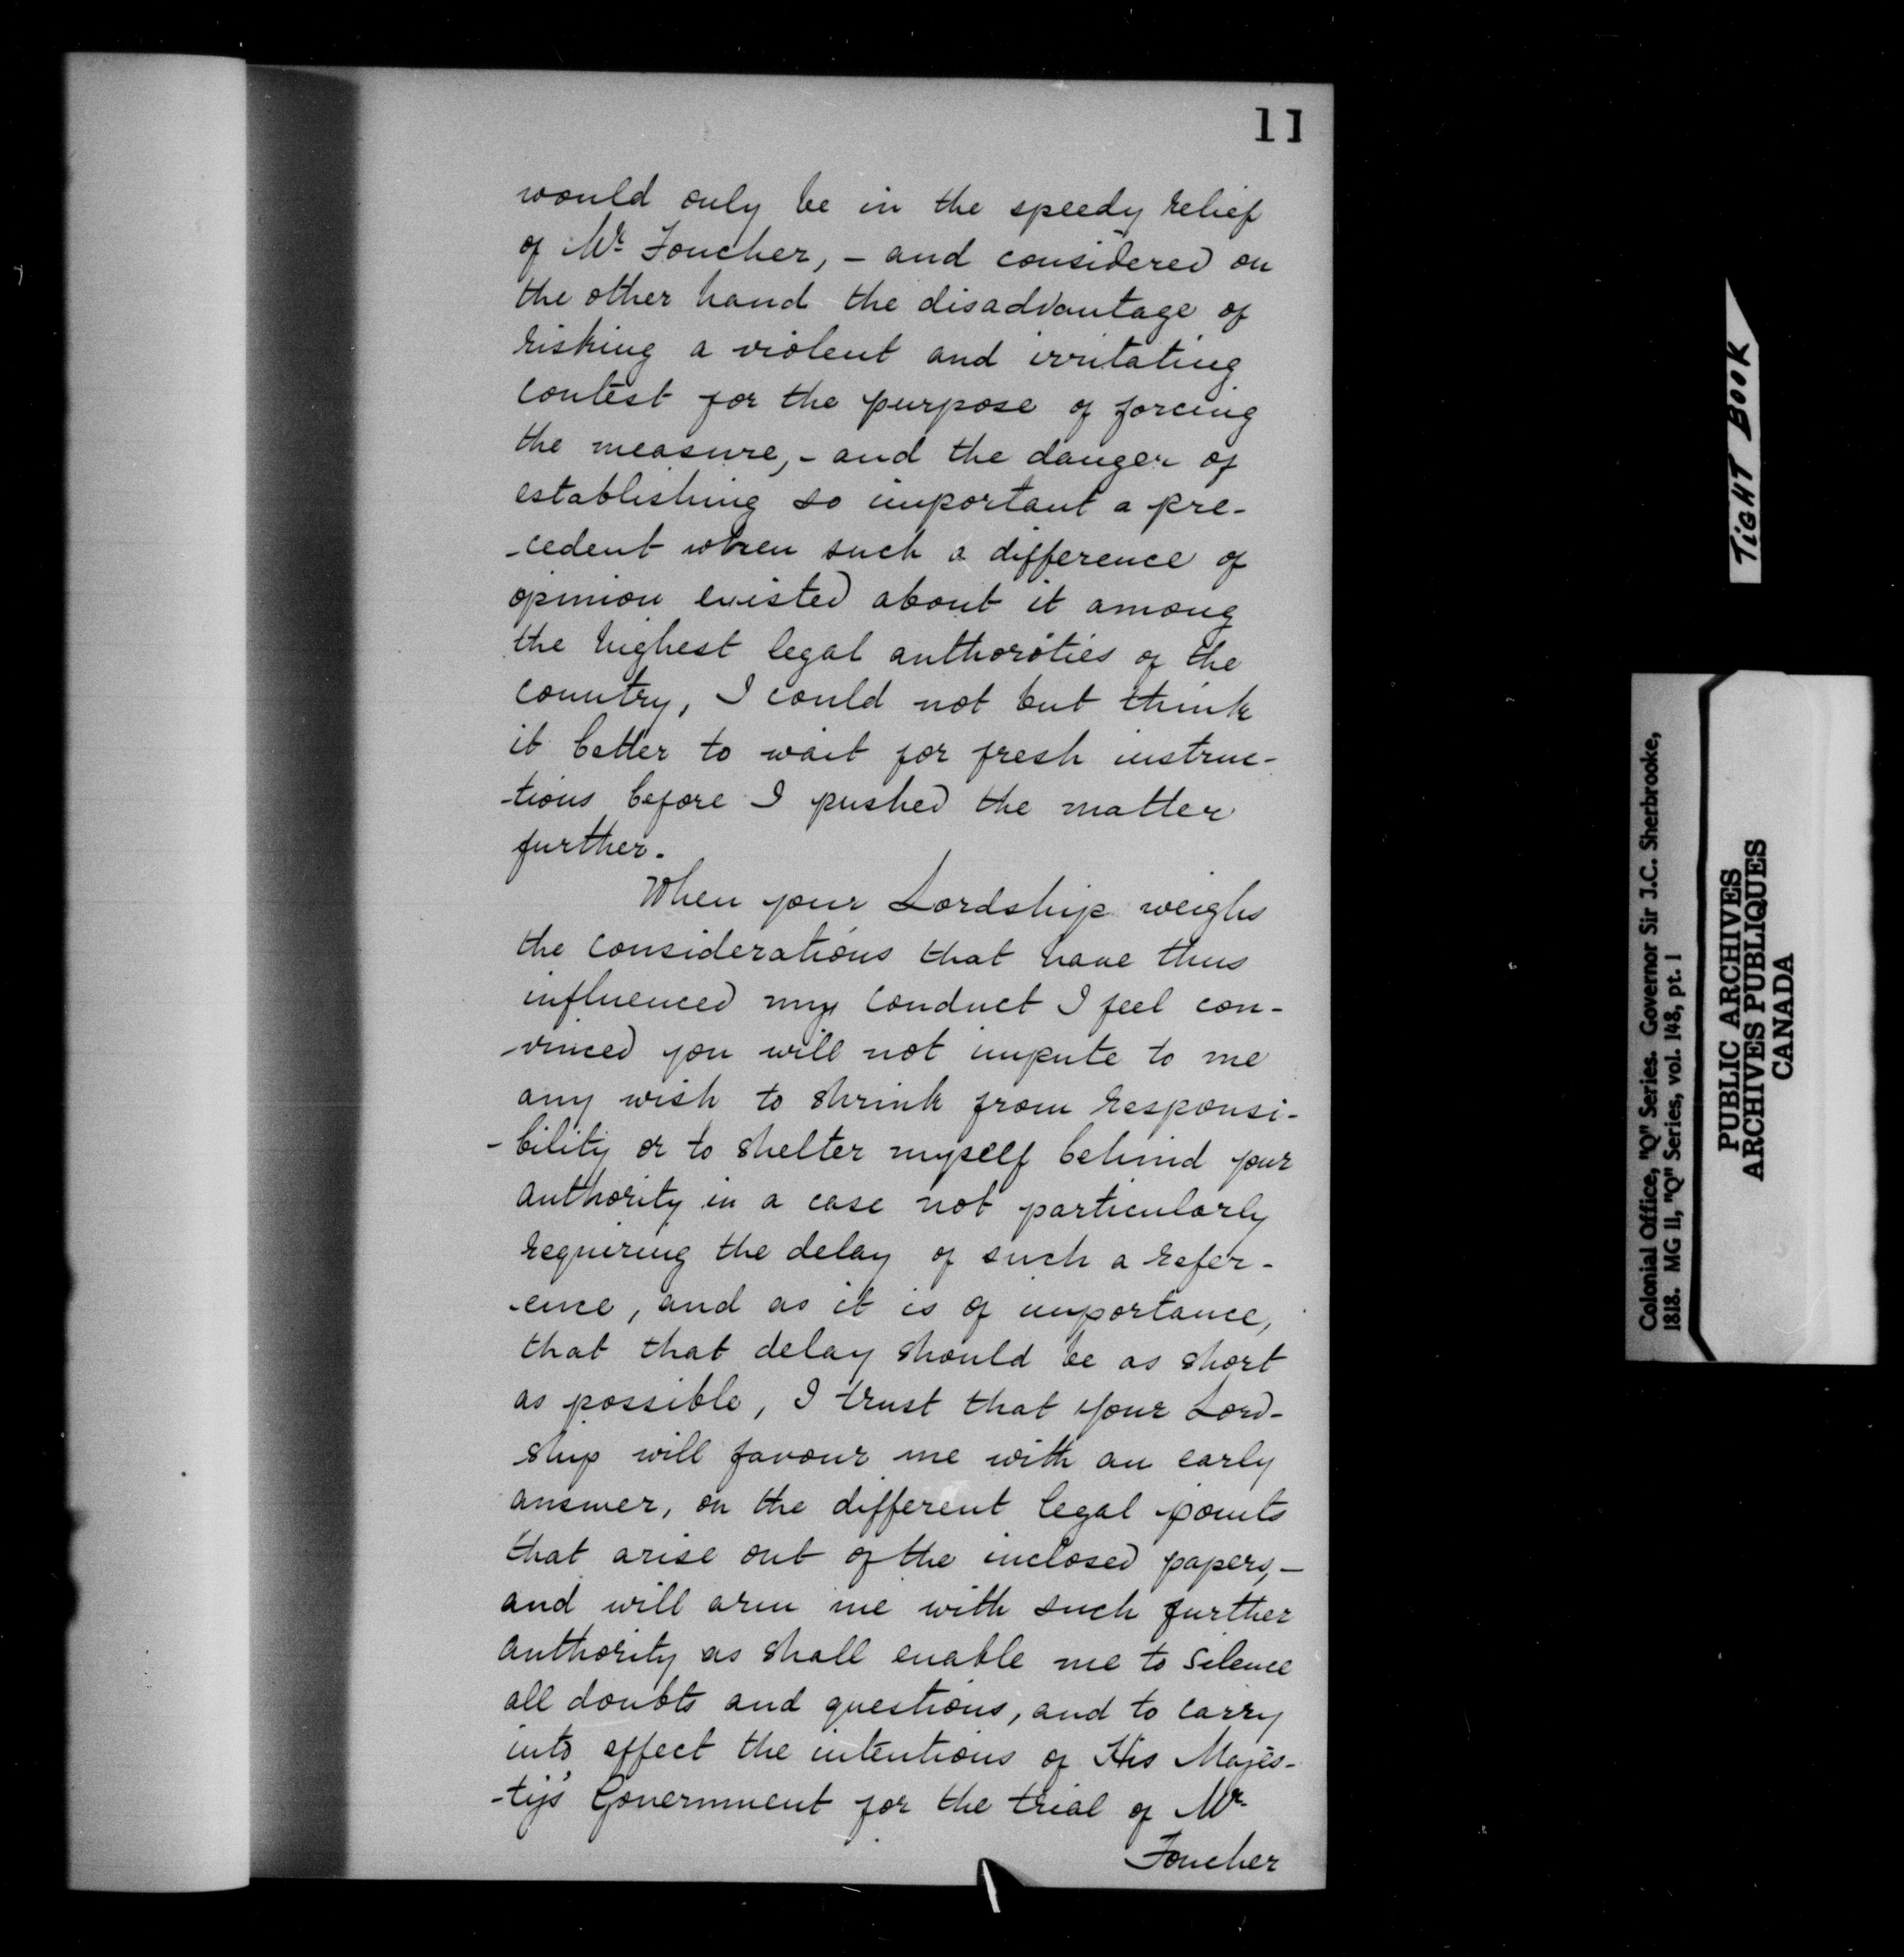 11
would only be in the speedy relief
of Mr Foucher, - and considered on
the other hand the disadvantage of
risking a violent and irritating
contest for the purpose of forcing
the measure, - and the danger of
establishing so important a pre-
-cedent when such a difference of
opinion existed about it among
the highest legal authorities of the
country, I could not but think
it better to wait for fresh instruc-
-tions before I pushed the matter
further.
When your Lordship weighs
the considerations that have thus
influenced my conduct I feel con-
-vinced you will not impute to me
any wish to shrink from responsi-
-bility or to shelter myself behind your
authority in a case not particularly
requiring the delay of such a refer-
-ence, and as it is of importance,
that that delay should be as short
as possible, I trust that your Lord-
ship will favour me with an early
answer, on the different legal points
that arise out of the inclosed papers, -
and will arm me with such further
authority as shall enable me to silence
all doubts and questions, and to carry
into effect the intentions of His Majes-
-ty's Government for the trial of Mr
Foucher
TIGHT BOOK
Colonial Office, "Q" Series. Governor Sir J.C. Sherbrooke,
1818. MG 11, "Q" Series, vol. 148, pt. 1
PUBLIC ARCHIVES
ARCHIVES PUBLIQUES
CANADA